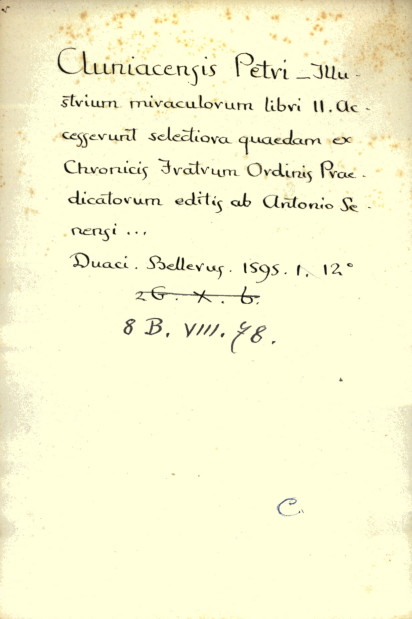 Cluniacensis Petri _ Illu-
strium miraculorum libri II. Ac-
cesserunt selectiora quaedam ex
Chronicis Fratrum Ordinis Prae-
dicatorum editis ab Antonio Se-
nensi ...
Duaci. Bellerus. 1595. 1. 12°
2G. X. 6.
8 B. VIII. 78.
C.